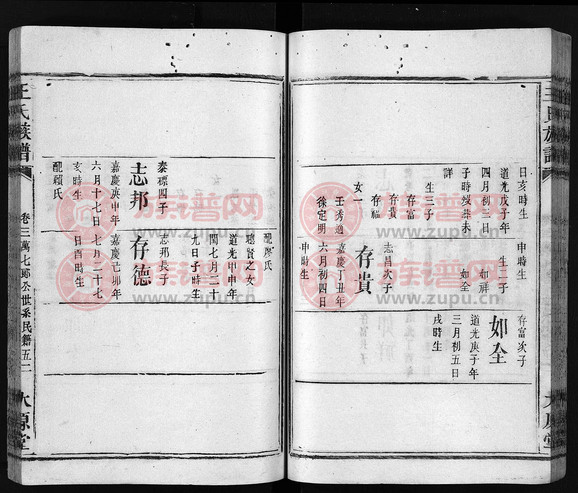 王氏族譜
太原堂
日亥時生
道光戊子年
四月初三日
子時歿葬未
詳
生三子
存富
存貴
存福
女一
王秀適
徐定明
申時生
生二子
如祥
如全
志昌次子
存貴
嘉慶丁丑年
六月初四日
申時生
存富次子
如全
道光庚子年
三月初五日
戌時生
泰標四子
志邦
嘉慶庚申年
六月十七日
亥時生
配賴氏
配廖氏
聰賢之女
道光甲申年
閏七月二十
九日子時生
志邦長子
存德
嘉慶己卯年
七月二十七
日酉時生
王氏族譜
卷三萬七郎公世系民籍五一
太原堂
族谱网
www.zupu.cn